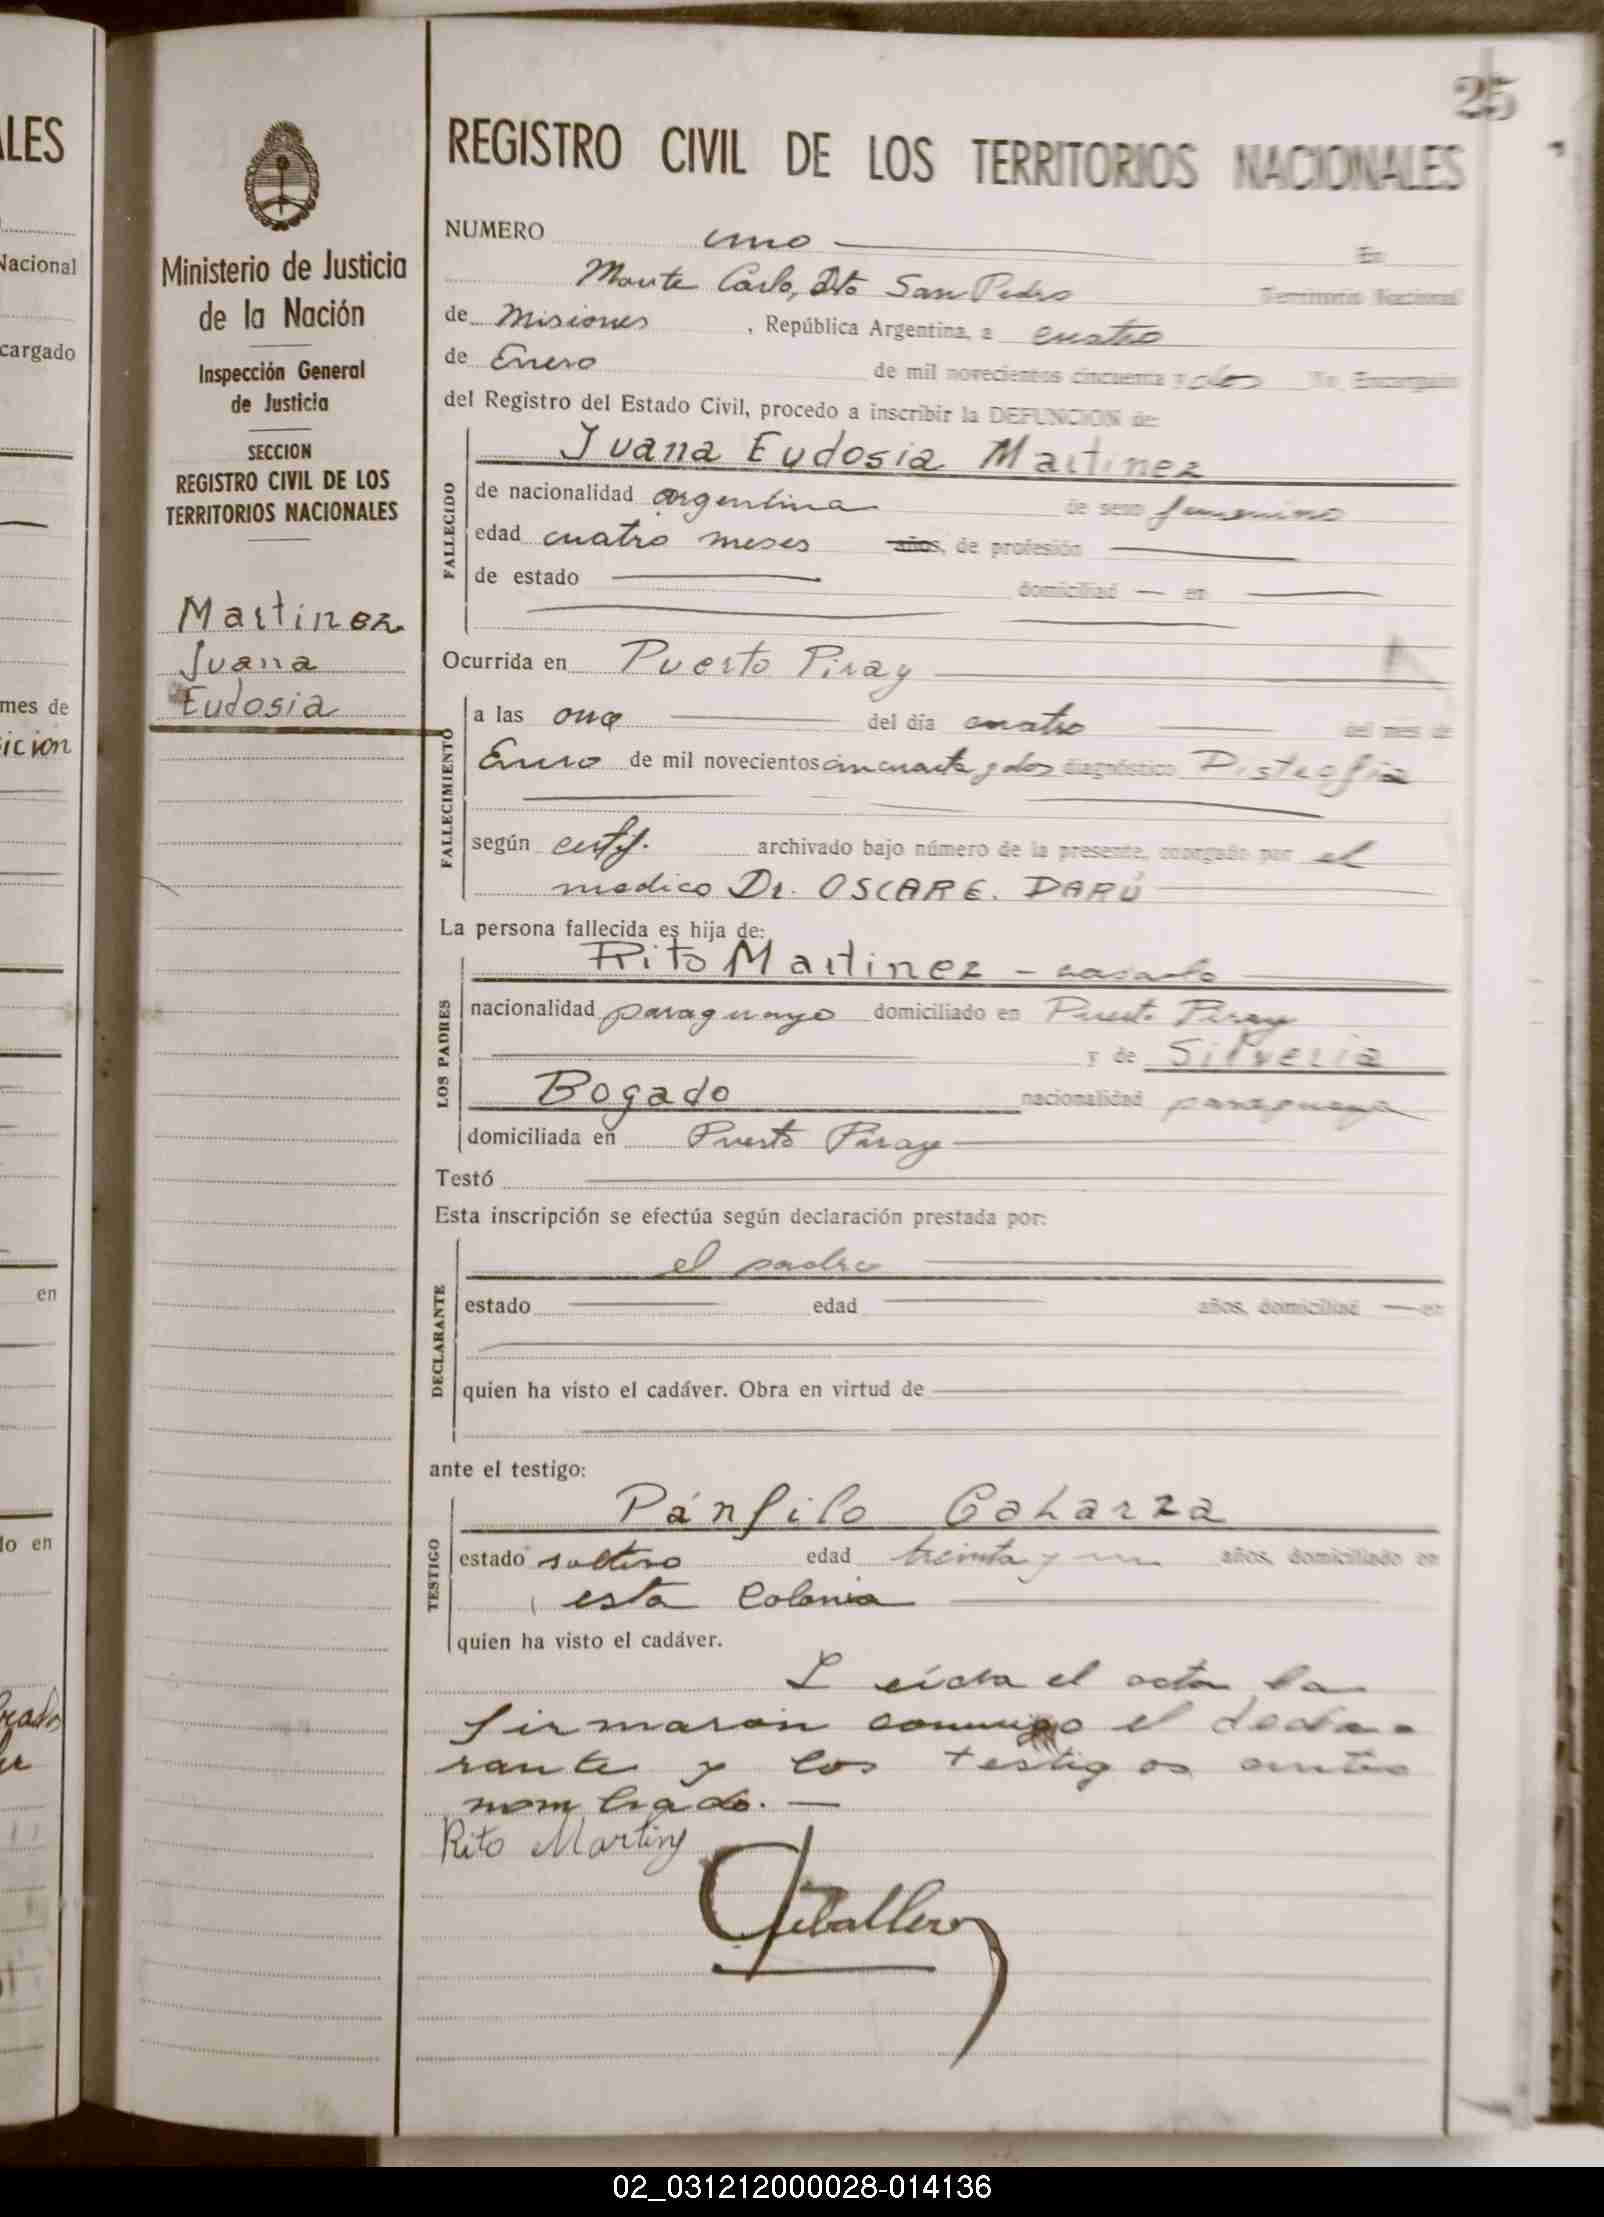 25
REGISTRO CIVIL DE LOS TERRITORIOS NACIONALES
Ministerio de Justicia
de la Nación
Inspección General
de Justicia
SECCION
REGISTRO CIVIL DE LOS
TERRITORIOS NACIONALES
Martinez
Juana
Eudosia
NUMERO uno En
Monte Carlo, Dto San Pedro Territorio Nacional
de Misiones, República Argentina, a cuatro
de Enero de mil novecientos cincuenta y dos Yo, Encargado
del Registro del Estado Civil, procedo a inscribir la DEFUNCION de:
FALLECIDO
Juana Eudosia Martinez
de nacionalidad argentina de sexo femenino
edad cuatro meses años, de profesión —
de estado — domiciliad — en —
Ocurrida en Puerto Piray
FALLECIMIENTO
a las once del día cuatro del mes de
Enero de mil novecientos cincuenta y dos diagnóstico Distrofia
según certif. archivado bajo número de la presente, otorgado por el
medico Dr. OSCAR E. DARÚ
La persona fallecida es hija de:
LOS PADRES
Rito Martinez - casado
nacionalidad paraguayo domiciliado en Puerto Piray
y de Silveria
Bogado nacionalidad paraguaya
domiciliada en Puerto Piray
Testó
Esta inscripción se efectúa según declaración prestada por:
DECLARANTE
el padre
estado — edad — años, domiciliad — en
quien ha visto el cadáver. Obra en virtud de
ante el testigo:
TESTIGO
Pánfilo Galarza
estado soltero edad treinta y un años, domiciliado en
esta Colonia
quien ha visto el cadáver.
Leida el acta la
firmaron conmigo el decla-
rante y los testigos antes
nombrado. —
Rito Martinz
ALES
Nacional
cargado
mes de
ición
en
do en
02_031212000028-014136